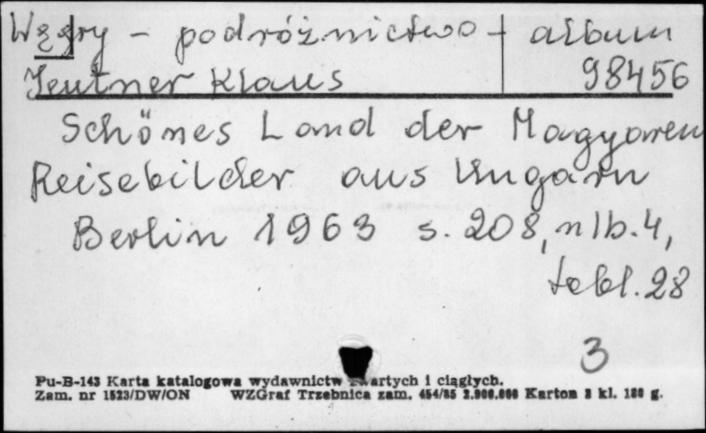 Węgry - podróżnictwo + album
Jeutner Klaus 98456
Schönes Land der Magyaren
Reisebilder aus Ungarn
Berlin 1963 s. 208, nlb. 4,
tabl. 28
3
Pu-B-143 Karta katalogowa wydawnictw zwartych i ciągłych.
Zam. nr 1523/DW/ON WZGraf Trzebnica zam. 454/85 2.900.000 Karton 3 kl. 180 g.